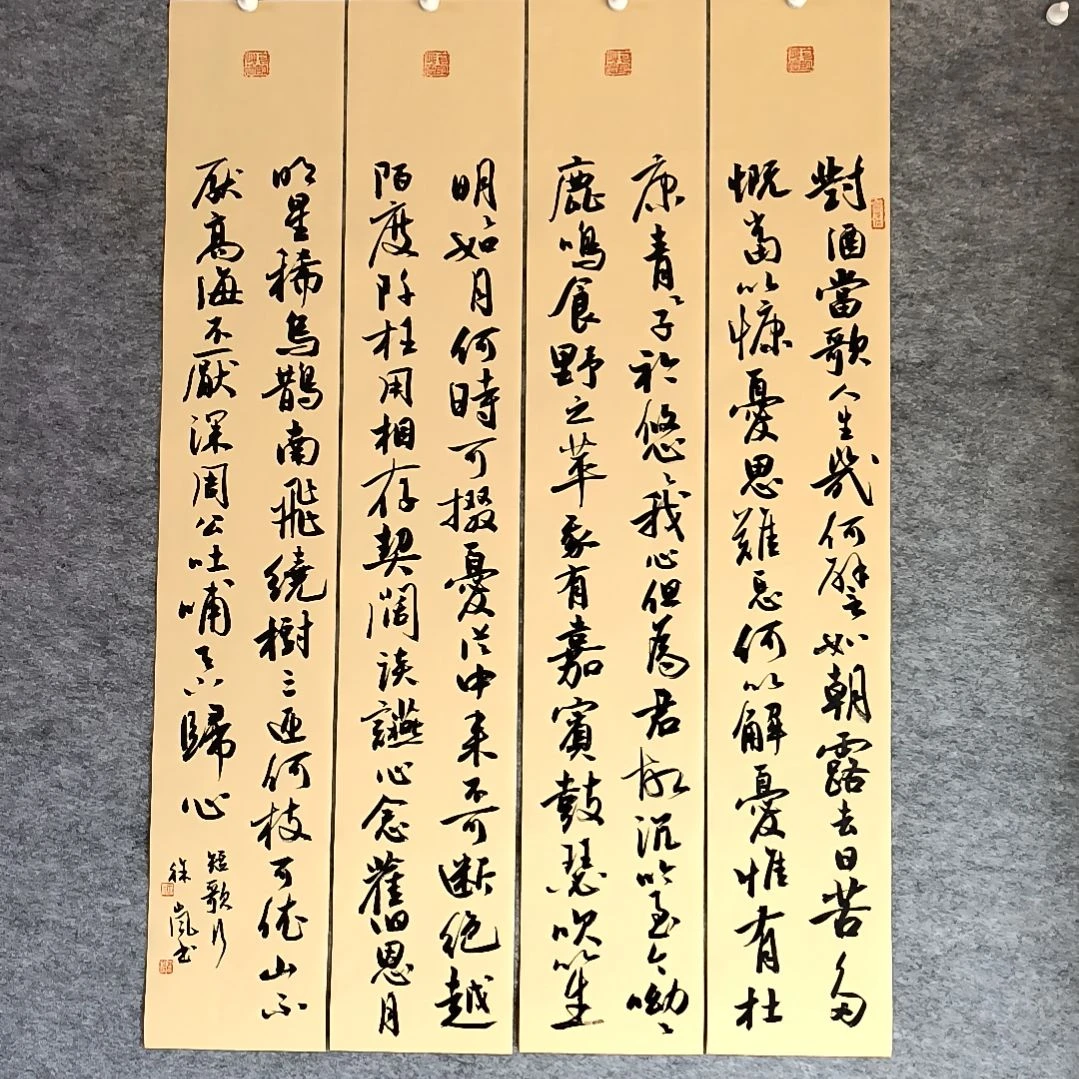 對酒當歌人生幾何譬如朝露去日苦多
慨當以慷憂思難忘何以解憂惟有杜
康青〻子衿悠〻我心但為君故沉吟至今呦〻
鹿鳴食野之苹我有嘉賓鼓瑟吹笙
明〻如月何時可掇憂從中来不可断絕越
陌度阡枉用相存契闊談讌心念舊恩月
明星稀烏鵲南飛繞樹三匝何枝可依山不
厭高海不厭深周公吐哺天下歸心
短歌行
徐嵐书